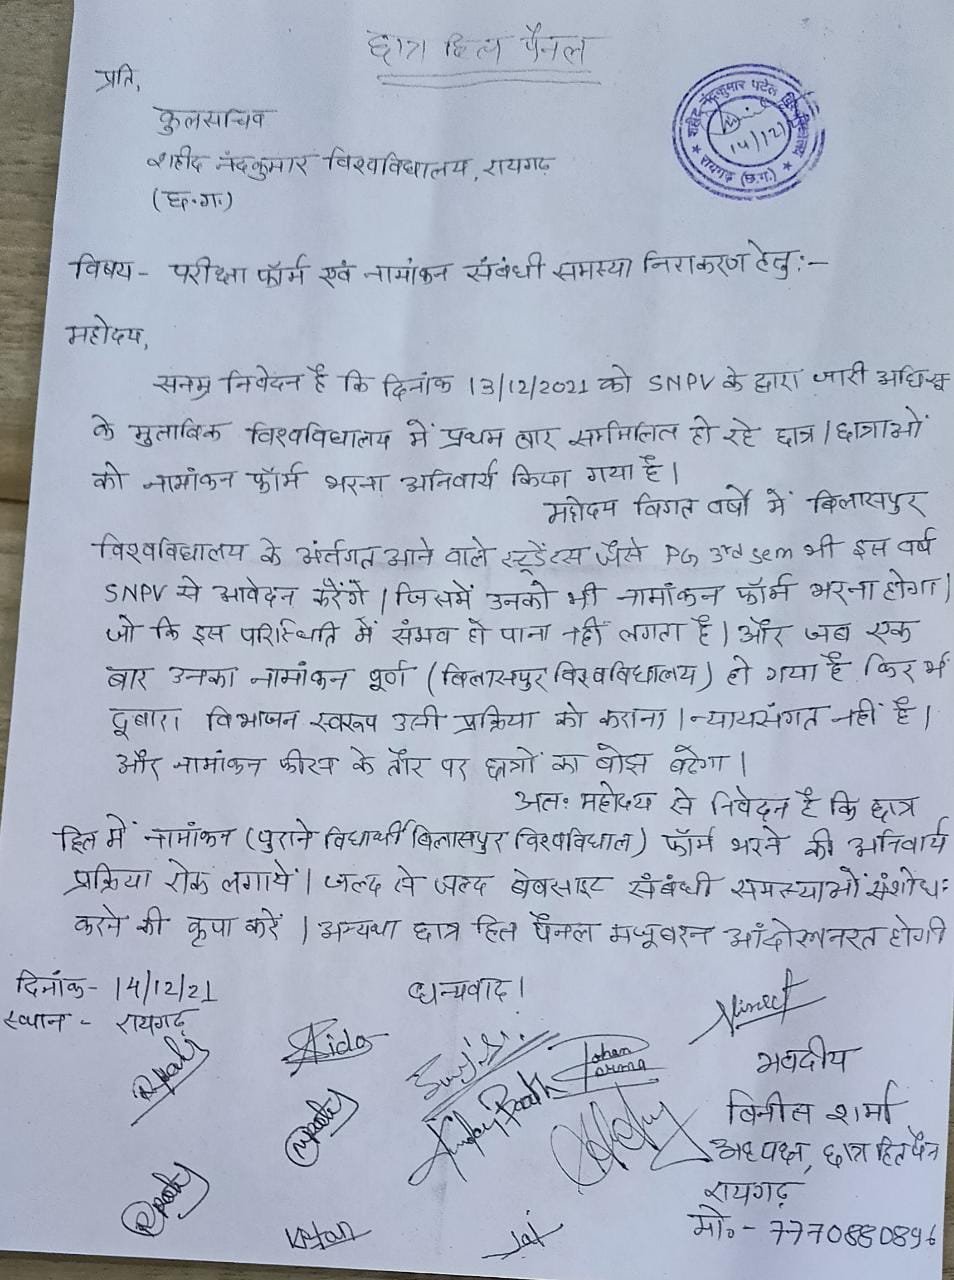 छात्र हित पैनल
प्रति,
कुलसचिव
शहीद नंदकुमार विश्वविद्यालय, रायगढ़
(छ.ग.)
शहीद नंदकुमार पटेल विश्वविद्यालय
14/12/21
रायगढ़ (छ.ग.)
विषय - परीक्षा फॉर्म एवं नामांकन संबंधी समस्या निराकरण हेतु :-
महोदय,
सनम्र निवेदन है कि दिनांक 13/12/2021 को SNPV के द्वारा जारी अधिसू
के मुताबिक विश्वविद्यालय में प्रथम बार सम्मिलित हो रहे छात्र / छात्राओं
को नामांकन फॉर्म भरना अनिवार्य किया गया है।
महोदय विगत वर्षो में बिलासपुर
विश्वविद्यालय के अंर्तगत आने वाले स्टूडेंटस जैसे PG 3rd sem भी इस वर्ष
SNPV से आवेदन करेंगे। जिसमें उनको भी नामांकन फॉर्म भरना होगा।
जो कि इस परिस्थिति में संभव हो पाना नहीं लगता है। और जब एक
बार उनका नामांकन पूर्ण (बिलासपुर विश्वविद्यालय) हो गया है फिर भी
दूबारा विभाजन स्वरूप उसी प्रक्रिया को कराना। न्यायसंगत नहीं है।
और नामांकन फीस के तौर पर छात्रों का बोझ बढेगा।
अतः महोदय से निवेदन है कि छात्र
हित में नामांकन (पुराने विधार्थी बिलासपुर विश्वविद्याल) फॉर्म भरने की अनिवार्य
प्रक्रिया रोक लगायें। जल्द से जल्द वेबसाइट संबंधी समस्याओं संशोध
करने की कृपा करें। अन्यथा छात्र हित पैनल मजूबरन आंदोलनरत होगी
दिनांक - 14/12/21
धन्यवाद।
स्थान - रायगढ़
Vineet
भवदीय
विनीत शर्मा
अध्यक्ष, छात्र हित पैन
रायगढ़
मो॰ - 7770880896